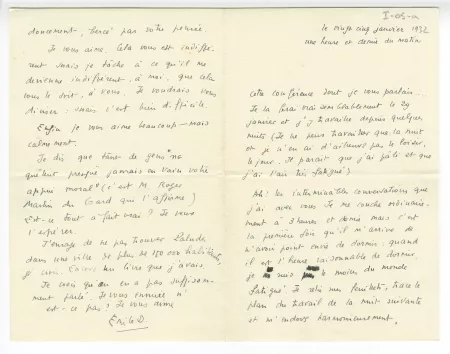 I-05-a
le vingt cinq janvier 1932
une heure et demie du matin
cette conférence dont je vous parlais...
Je la ferai vraisemblablement le 29
janvier et j'y travaille depuis quelques
nuits (Je ne peux travailler que la nuit
et je n'en ai d'ailleurs pas le loisir,
le jour. Il paraît que j'ai pâli et que
j'ai l'air très fatigué)
Ah! les interminables conversations que
j'ai avec vous. Je me couche ordinaire-
ment à 3 heures et demie mais c'est
la première fois qu'il m'arrive de
n'avoir point envie de dormir, quand
il est l'heure raisonnable de dormir,
je suis le moins du monde
fatigué. Je relis mes feuillets, trace le
plan du travail de la nuit suivante
et m'endors harmonieusement,
doucement, bercé par votre pensée.
Je vous aime. Cela vous est indiffé-
rent mais je tâche à ce qu'il me
devienne indifférent, à moi, que cela
vous le soit, à vous. Je voudrais vous
: mais c'est bien difficile.
Enfin je vous aime beaucoup — mais
calmement.
Je dis que tant de gens "ne
quêtent presque jamais en vain votre
appui moral" (c'est M. Roger
Martin du Gard qui l'affirme)
Est-ce tout à fait vrai? Je veux
l'espérer.
J'enrage de ne pas trouver Paludes
dans une ville de plus de 150 000 habitants,
je crois. Encore un livre que j'avais.
Je crois qu'on en a pas suffisam-
ment parlé. Je vous ennuie n'
est-ce pas? Je vous aime
Emile D.